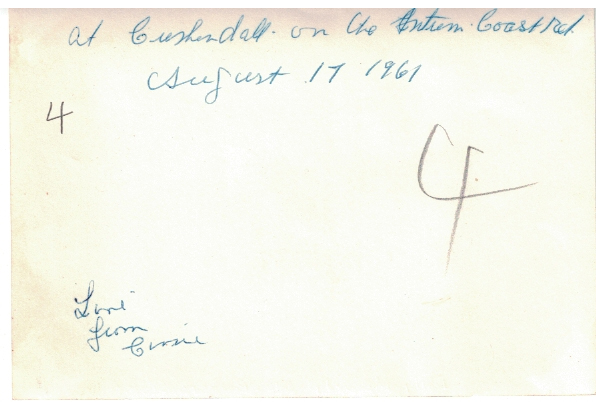 at Cushendall. on the Antrim Coast Rd.
August 17 1961
4
4
Love
from